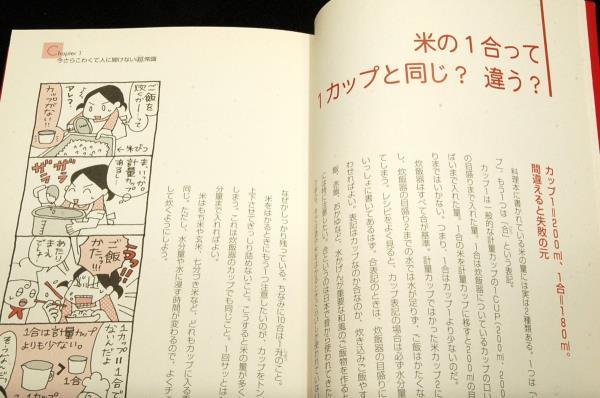 米の１合って
１カップと同じ？ 違う？
カップ１＝２００ml、１合＝１８０ml。
間違えると失敗の元
料理本に書かれている米の量には実は２種類ある。１つは「
プ」、もう１つは「合」という表記。
カップ１は一般的な計量カップの１CUP（２００ml、
の目盛りまで入れた量。１合は炊飯器についているカップの口い
ぱいまで入れた量。１合の米を計量カップに移すと２００ml
りまではいかない。つまり、１合はカップ１より少ないのだ。
炊飯器はすべて合が基準。計量カップではかった米カップ２に
炊飯器の目盛り２までの水では水が足りず、ご飯はかたくな
てしまう。レシピをよく見ると、カップ表記の場合は必ず水分量
いっしょに書いてあるはず。合表記のときは、炊飯器の目盛り
わせればいい。表記はカップなのか合なのか、炊き込みご飯や
飯、赤飯、おかゆなど、水かげんが重要な和風のご飯物を作ると
Chapter 1
今さらこわくて人に聞けない超常識
なぜかしっかり残っている。ちなみに１０合は１升のこと。
米をはかるときにもう一つ注意したいのが、カップをトン
上下させてぎっしり詰めないこと。こうすると米の量が多く
しまう。これは炊飯器のカップでも同じこと。１回サッとは
米はもち米や玄米、七分づき米など、どれもカップに入る
同じ。ただし、水分量や水に浸す時間が変わるので、よくチ
して炊くようにしよう。
ご飯を
炊くかーって
アレ？
カップがない!!
←米びつ
まいっか。
計量カップ
あるし!
ザラ
ザラ
ご飯
かた!!
１カップ＝１合で
ないんだよ
１合は計量カップ
よりも少ない。
１カップ
>
１合